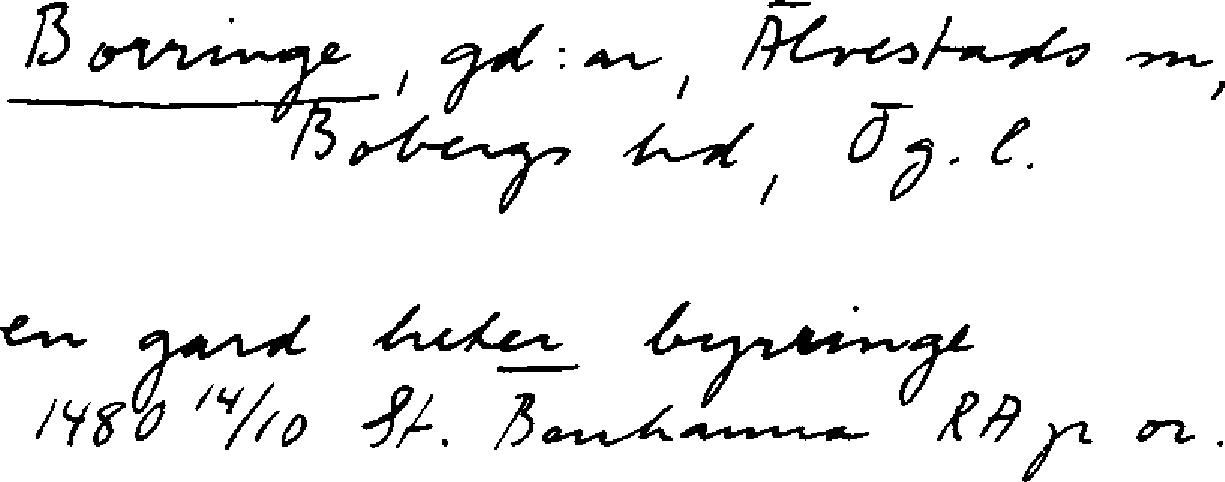 Borringe, gd:ar, Älvestads sn,
Bobergs hd, Ög. l.
en gard heter byrringe
1480 14/10 St. Bonhamra RA p or.